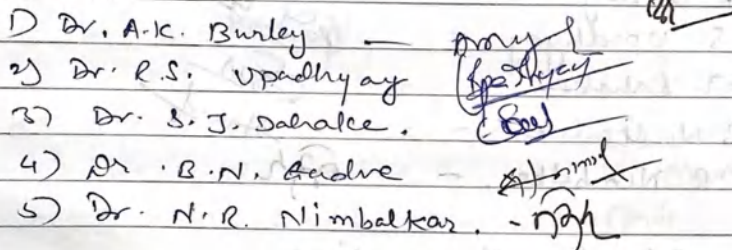 1) Dr. A.K. Burley —
2) Dr. R.S. Upadhyay
3) Dr. S.J. Dahake.
4) Dr. B.N. Gadve
5) Dr. N.R. Nimbalkar. -